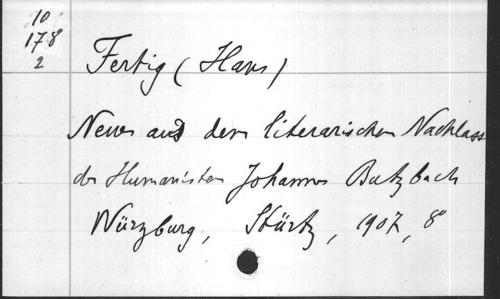 10
178
2
Fertig (Hans)
Neues aus dem literarischen Nachlass
des Humanisten Johannes Butzbach
Würzburg, Stürtz, 1907, 8°